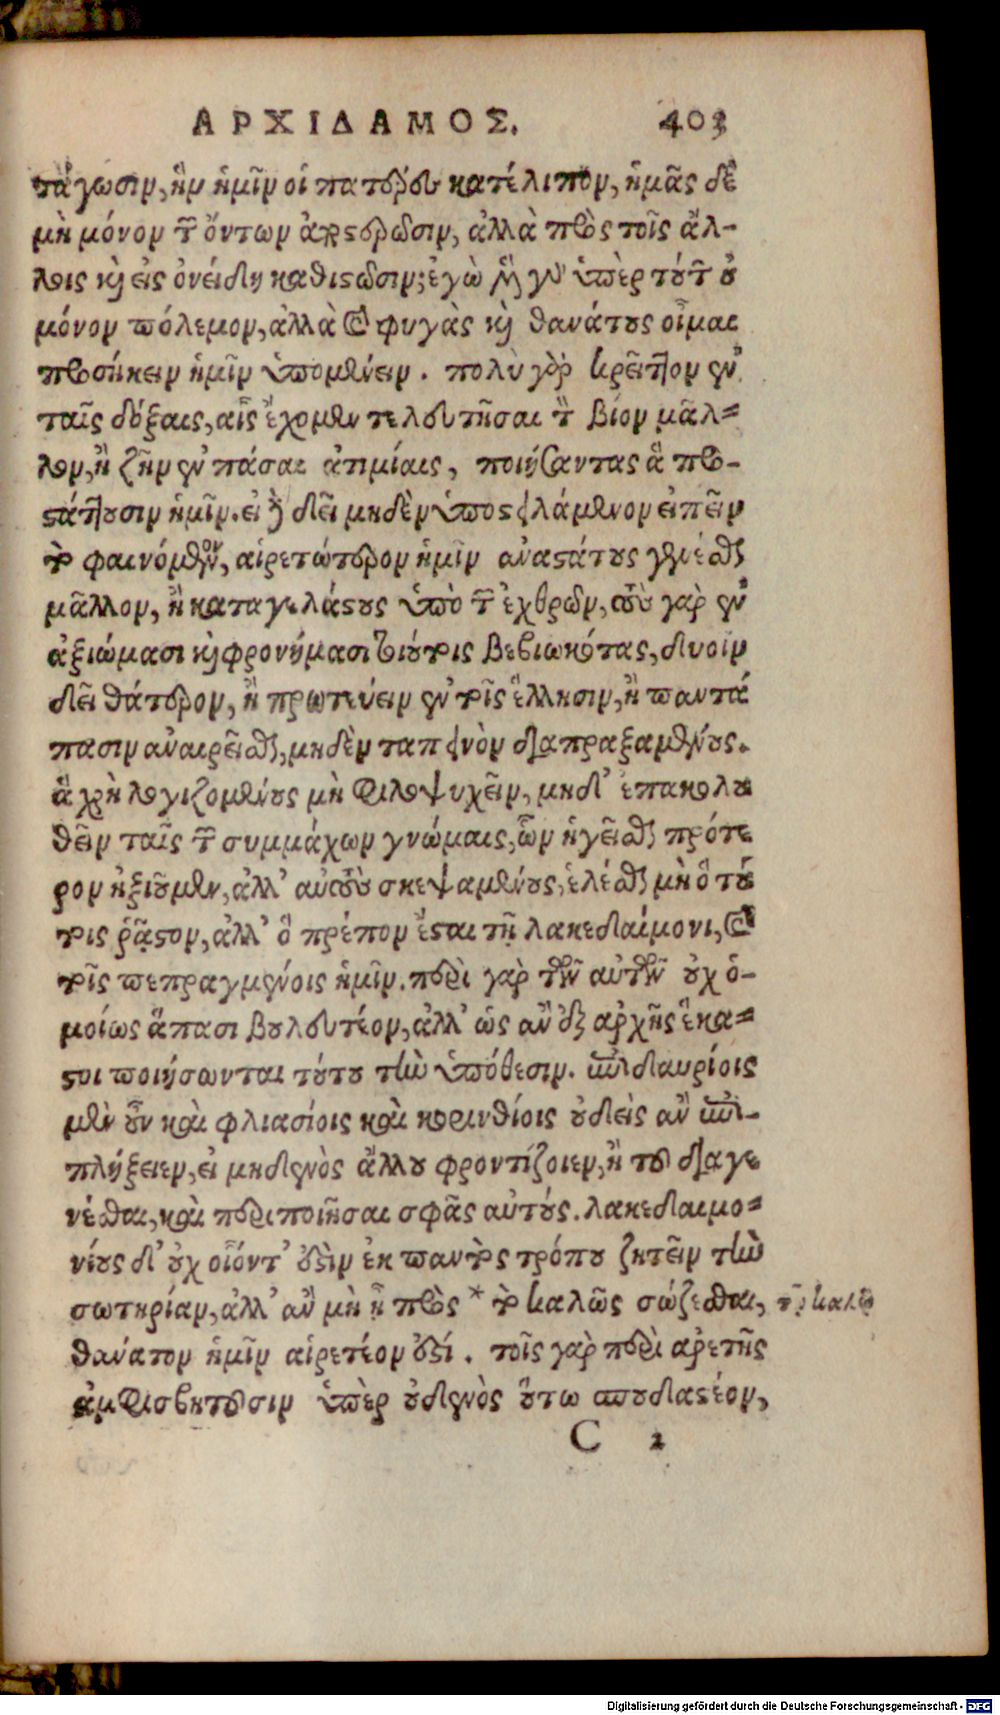 ΑΡΧΙΔΑΜΟΣ. 403
τάγωσιν, ἣν ἡμῖν οἱ πατέρες κατέλιπον, ἡμᾶς δὲ
μὴ μόνον τῶν ὄντων ἀποστερῶσιν, ἀλλὰ πρὸς τοῖς ἄλ-
λοις καὶ εἰς ὀνείδη καθιστῶσιν; ἐγὼ μὲν γὰρ ὑπὲρ τούτων οὐ
μόνον πόλεμον, ἀλλὰ καὶ φυγὰς καὶ θανάτους οἶμαι
προσήκειν ἡμῖν ὑπομένειν. πολὺ γὰρ κρεῖττον ἐν
ταῖς δόξαις, αἷς ἔχομεν τελευτῆσαι τὸν βίον μᾶλ-
λον, ἢ ζῆν ἐν πάσαι ἀτιμίαις, ποιήσαντας ἃ προ-
στάττουσιν ἡμῖν. εἰ δὲ δεῖ μηδὲν ὑποστειλάμενον εἰπεῖν
τὸ φαινόμενον, αἱρετώτερον ἡμῖν ἀναστάτους γενέσθαι
μᾶλλον, ἢ καταγελάστους ὑπὸ τῶν ἐχθρῶν, τοὺς γὰρ ἐν
ἀξιώμασι καὶ φρονήμασι τοιούτοις βεβιωκότας, δυοῖν
δεῖ θάτερον, ἢ πρωτεύειν ἐν τοῖς ἕλλησιν, ἢ παντά
πασιν ἀναιρεῖσθαι, μηδὲν ταπεινὸν διαπραξαμένους.
ἃ χρὴ λογιζομένους μὴ φιλοψυχεῖν, μηδ' ἐπακολου
θεῖν ταῖς τῶν συμμάχων γνώμαις, ὧν ἡγεῖσθαι πρότε
ρον ἠξιοῦμεν, ἀλλ' αὐτοὺς σκεψαμένους, ἑλέσθαι μὴ ὃ τού
τοις ῥᾷστον, ἀλλ' ὃ πρέπον ἔσται τῇ λακεδαίμονι, καὶ
τοῖς πεπραγμένοις ἡμῖν. περὶ γὰρ τῶν αὐτῶν οὐχ ὁ-
μοίως ἅπασι βουλευτέον, ἀλλ' ὡς ἂν ἐξ ἀρχῆς ἕκα-
στοι ποιήσωνται τούτου τὴν ὑπόθεσιν. ἐπιδαυρίοις
μὲν οὖν καὶ φλιασίοις καὶ κορινθίοις οὐδεὶς ἂν ἐπι-
πλήξειεν, εἰ μηδενὸς ἄλλου φροντίζοιεν, ἢ τοῦ διαγε
νέσθαι, καὶ περιποιῆσαι σφᾶς αὐτούς. λακεδαιμο-
νίους δ' οὐχ οἷόντ' ἐστὶν ἐκ παντὸς τρόπου ζητεῖν τὴν
σωτηρίαν, ἀλλ' ἂν μὴ ᾖ πρὸς * τὸ καλῶς σώζεσθαι, τῷ καλῶς
θάνατον ἡμῖν αἱρετέον ἐστί. τοῖς γὰρ περὶ ἀρετῆς
ἀμφισβητοῦσιν ὑπὲρ οὐδενὸς οὕτω σπουδαστέον,
C 2
Digitalisierung gefördert durch die Deutsche Forschungsgemeinschaft - DFG